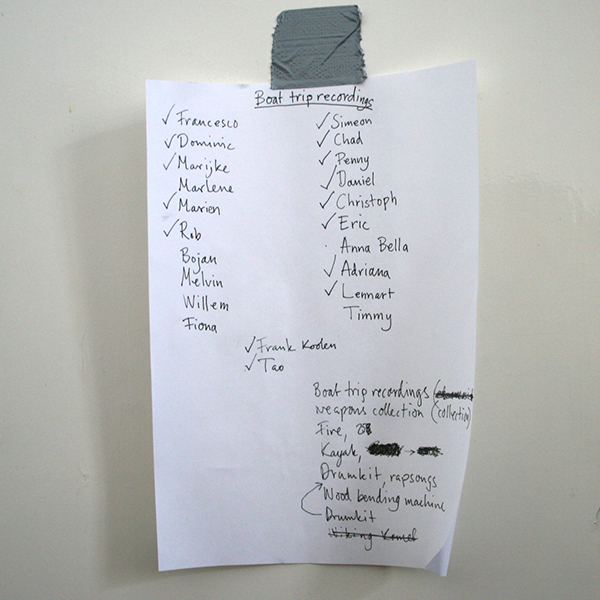 Boat trip recordings
✓ Francesco
✓ Dominic
✓ Marijke
Marlene
✓ Marien
✓ Rob
Bojan
Melvin
Willem
Fiona
✓ Simeon
✓ Chad
✓ Penny
✓ Daniel
✓ Christoph
✓ Eric
Anna Bella
✓ Adriana
✓ Lennart
Timmy
✓ Frank Koolen
✓ Tao
Boat trip recordings
weapons collection (collection)
Fire,
Kayak, →
Drumkit, rapsongs
Wood bending machine
Drumkit